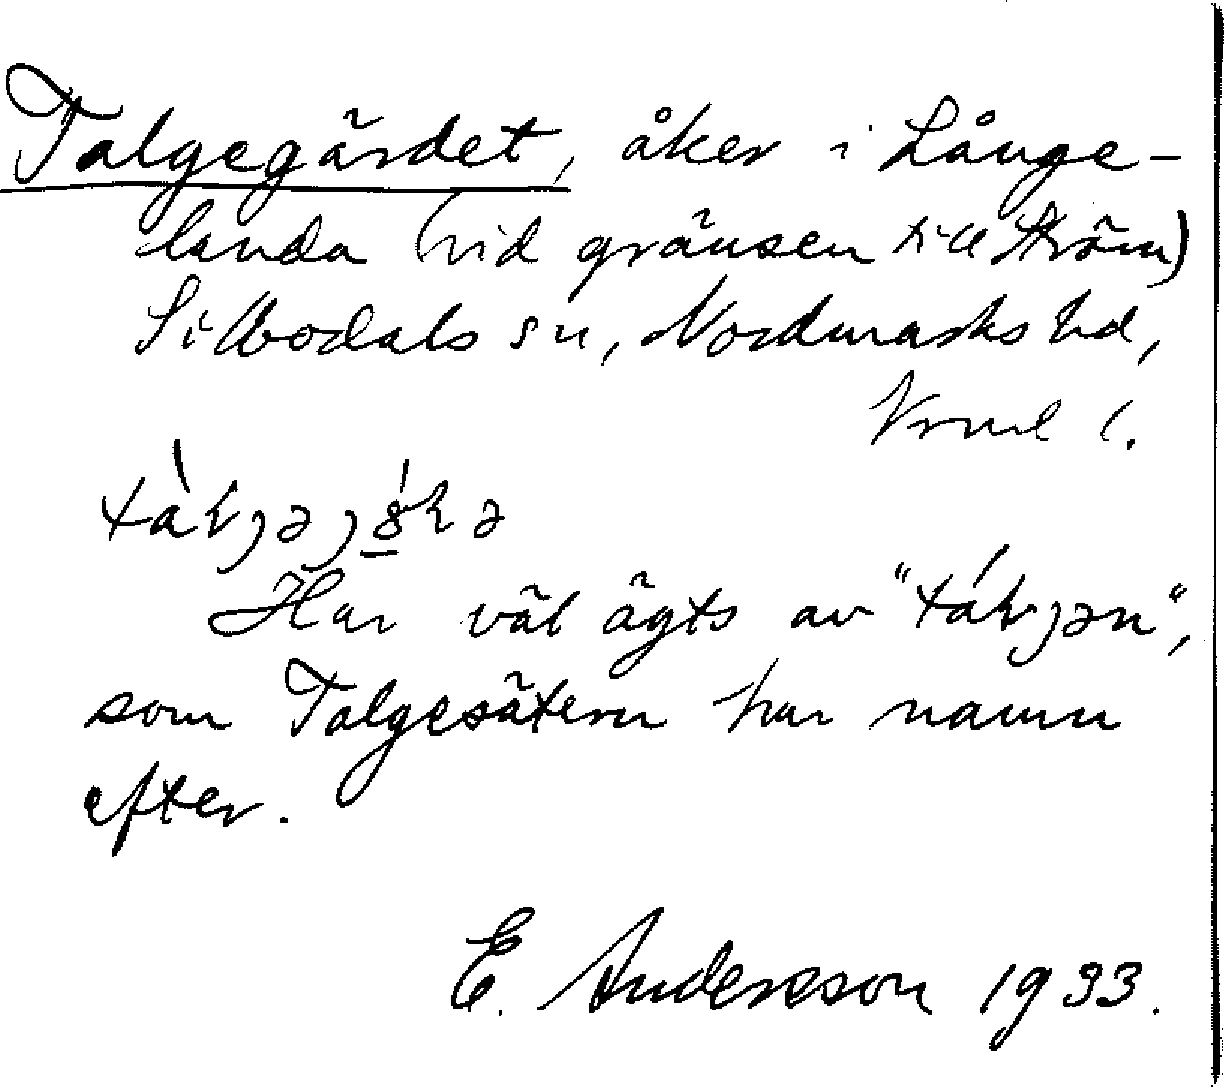 Talgegärdet, åker i Långe-
landa (vid gränsen till Ström)
Sillbodals sn, Nordmarks hd,
Vrml l.
Har väl ägts av
som Talgesätern har namn
efter.
E. Andersson 1933.